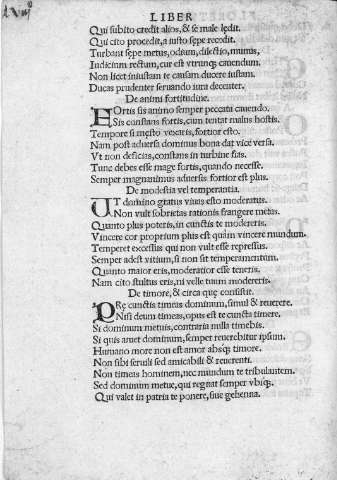 LIBER
Qui subito credit alios, & se male lędit.
Qui cito procedit, a iusto sępe recedit.
Turbant sępe metus, odium, dilectio, munus,
Iudicium rectum, cur est vtrunq; cauendum.
Non licet iniustam te causam ducere iustam.
Ducas prudenter seruando iura decenter.
De animi fortitudine.
FOrtis sis animo semper peccata cauendo.
Sis constans fortis, cum tentat malus hostis.
Tempore si męsto vexaris, fortior esto.
Nam post aduersa dominus bona dat vice versa.
Vt non deficias, constans in turbine fias.
Tunc debes esse mage fortis, quando necesse.
Semper magnanimus aduersis fortior est plus.
De modestia vel temperantia.
UT domino gratus viuas esto moderatus.
Non vult sobrietas rationis frangere metas.
Quanto plus poteris, in cunctis te modereris.
Vincere cor proprium plus est quàm vincere mundum.
Temperet excessus qui non vult esse repressus.
Semper adest vitium, si non sit temperamentum.
Quanto maior eris, moderatior esse teneris.
Nam cito stultus eris, ni velle tuum modereris.
De timore, & circa quę consistit.
PRę cunctis timeas dominum, simul & reuerere.
Nisi deum timeas, opus est te cuncta timere.
Si dominum metuis, contraria nulla timebis.
Si quis amet dominum, semper reuerebitur ipsum.
Humano more non est amor absq; timore.
Non sibi seruili sed amicabili & reuerenti.
Non timeas hominem, nec mundum te tribulantem.
Sed dominum metue, qui regnat semper vbiq;.
Qui valet in patria te ponere, siue gehenna.